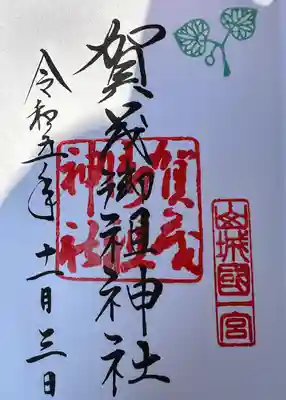 山城國一宮
賀茂御祖神社
賀茂御祖神社
令和五年十一月三日